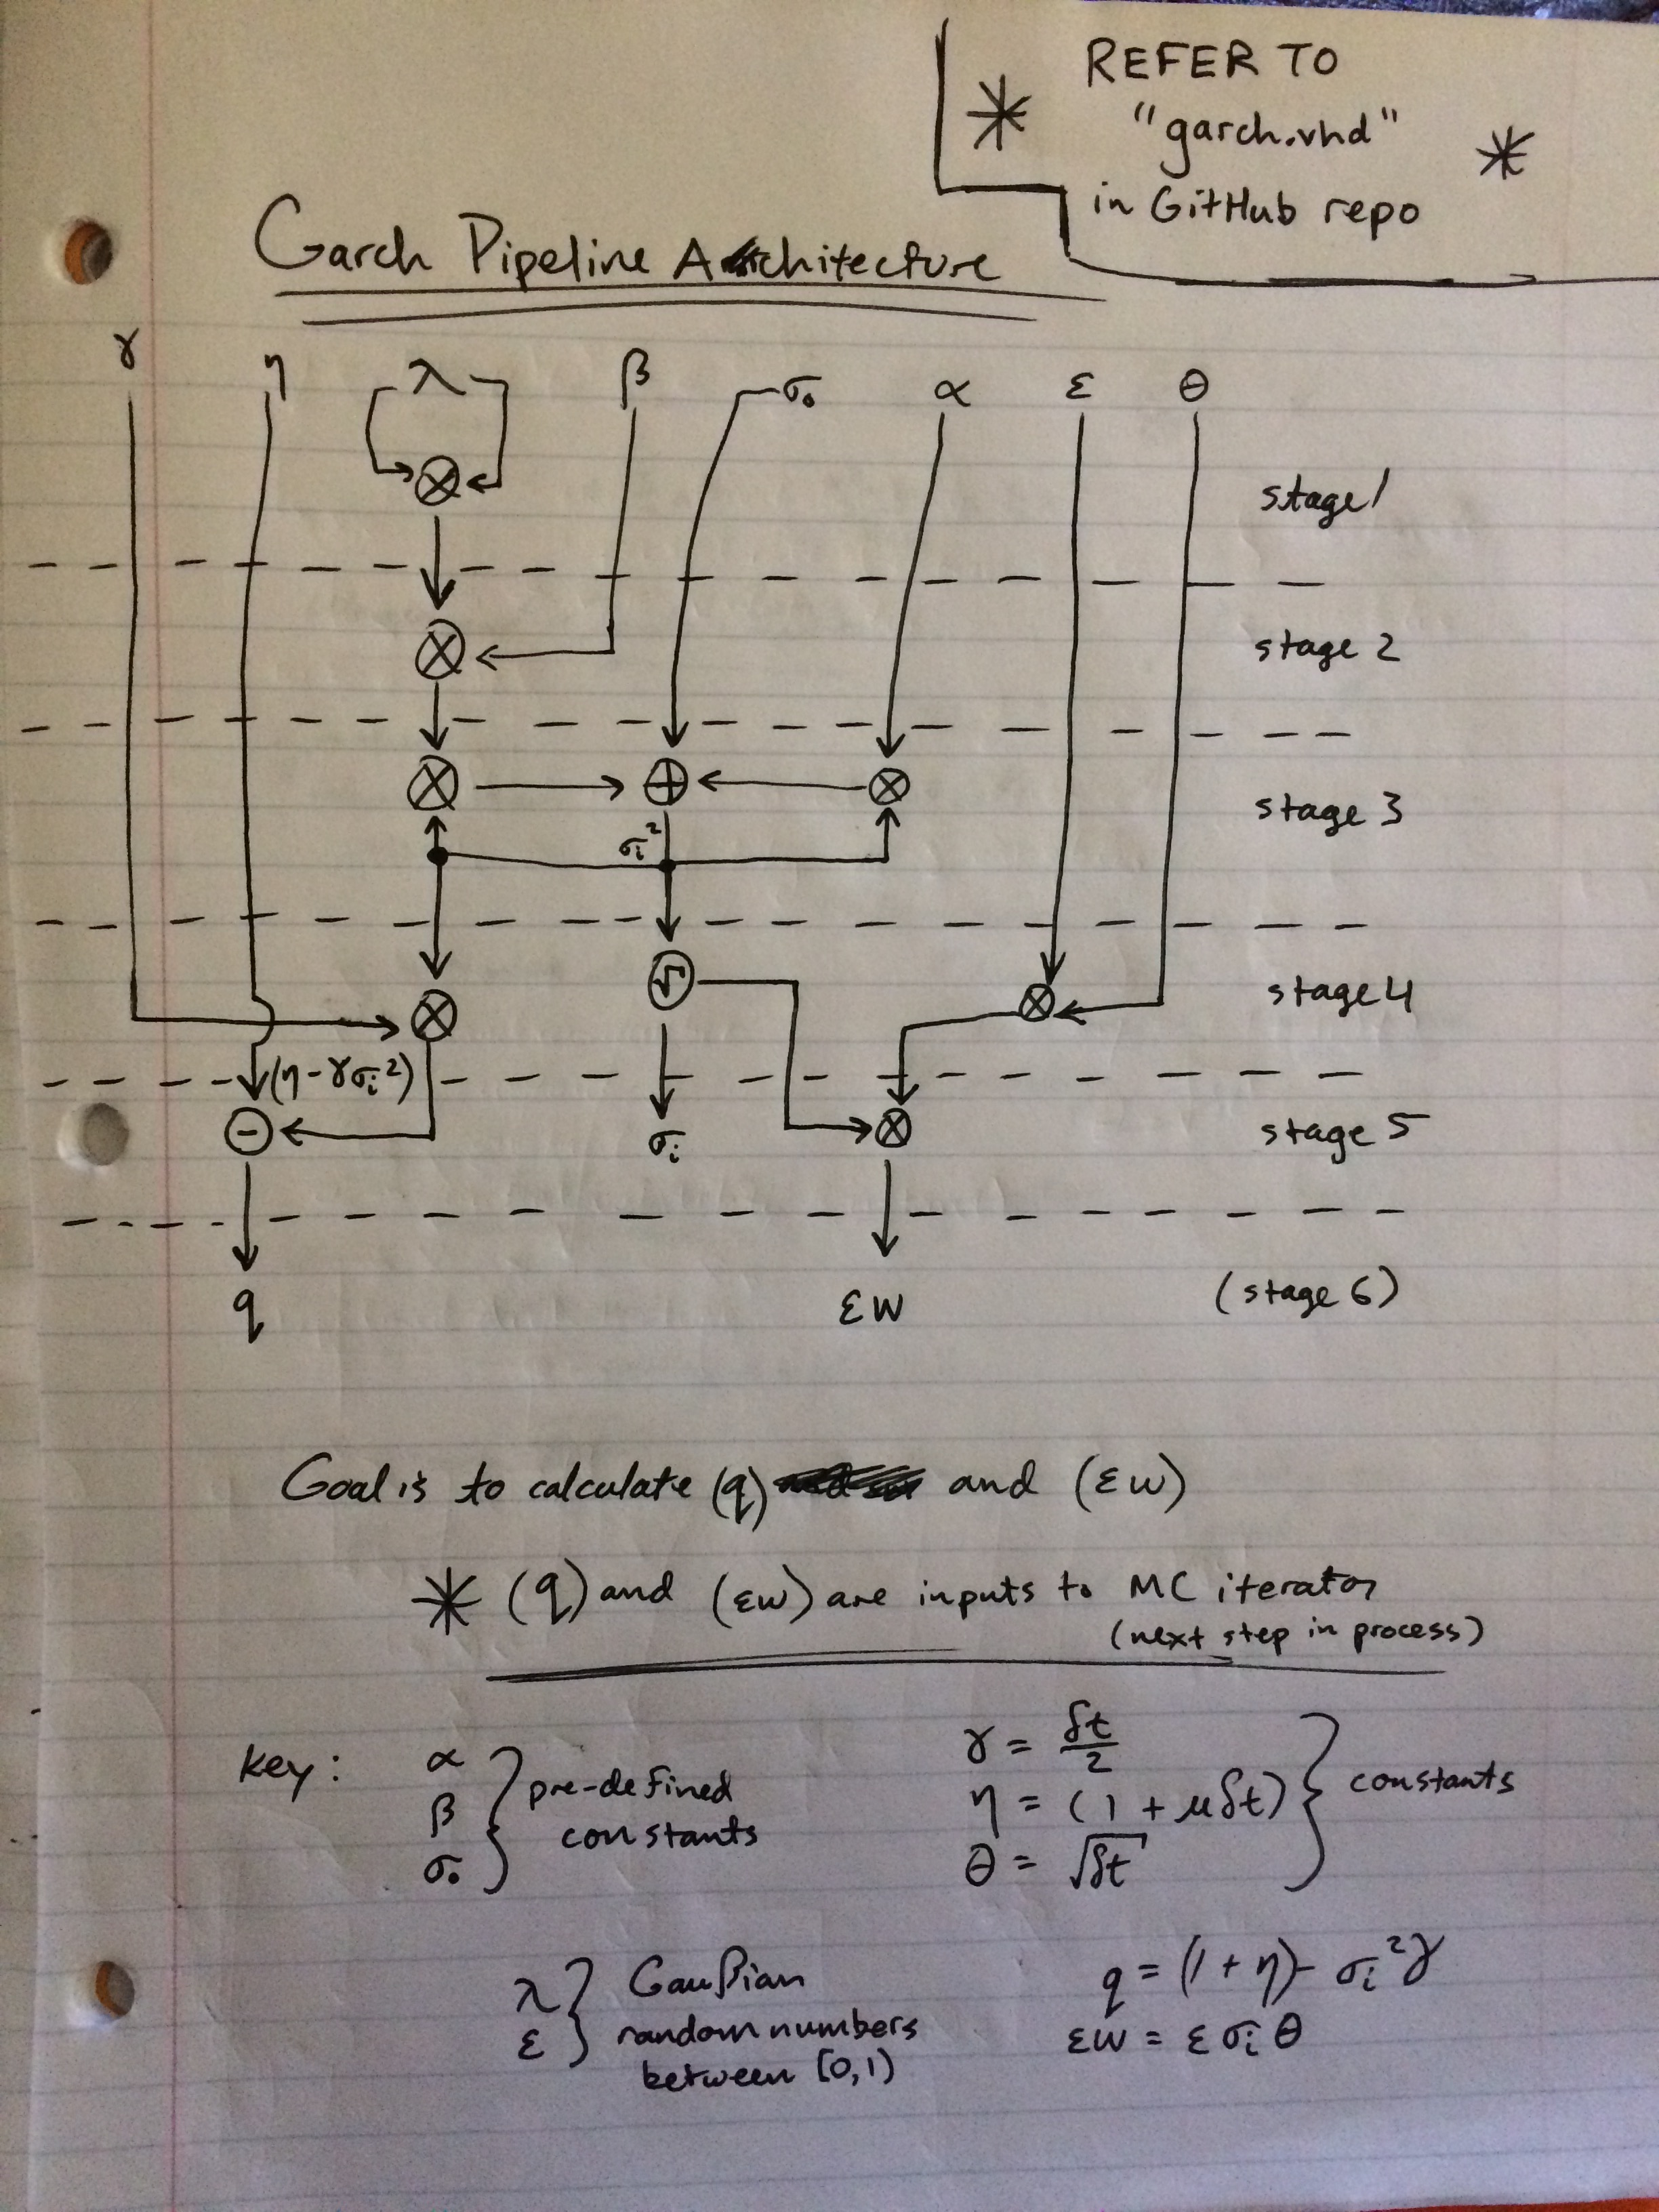 REFER TO
"garch.vhd"
in GitHub repo
* *
Garch Pipeline Architecture
γ η λ β σ₀ α ε θ
stage 1
stage 2
stage 3
σᵢ²
stage 4
(η - γσᵢ²)
σᵢ
stage 5
q εw (stage 6)
Goal is to calculate (q) and (εw)
* (q) and (εw) are inputs to MC iterator
(next step in process)
key:
α
β
σ₀
pre-defined
constants
γ = δt/2
η = (1 + μδt)
θ = √δt
constants
λ
ε
Gaußian
random numbers
between [0,1)
q = (1 + η) - σᵢ²γ
εw = ε σᵢ θ